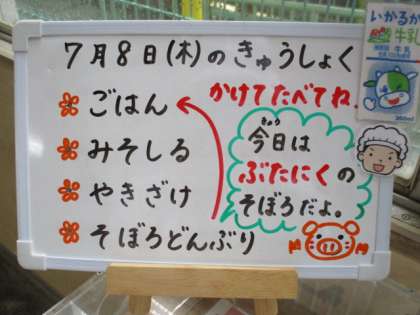 7月8日(木)のきゅうしょく
ごはん
みそしる
やきざけ
そぼろどんぶり
かけてたべてね。
きょう
今日は
ぶたにくの
そぼろだよ。
いかるが
牛乳